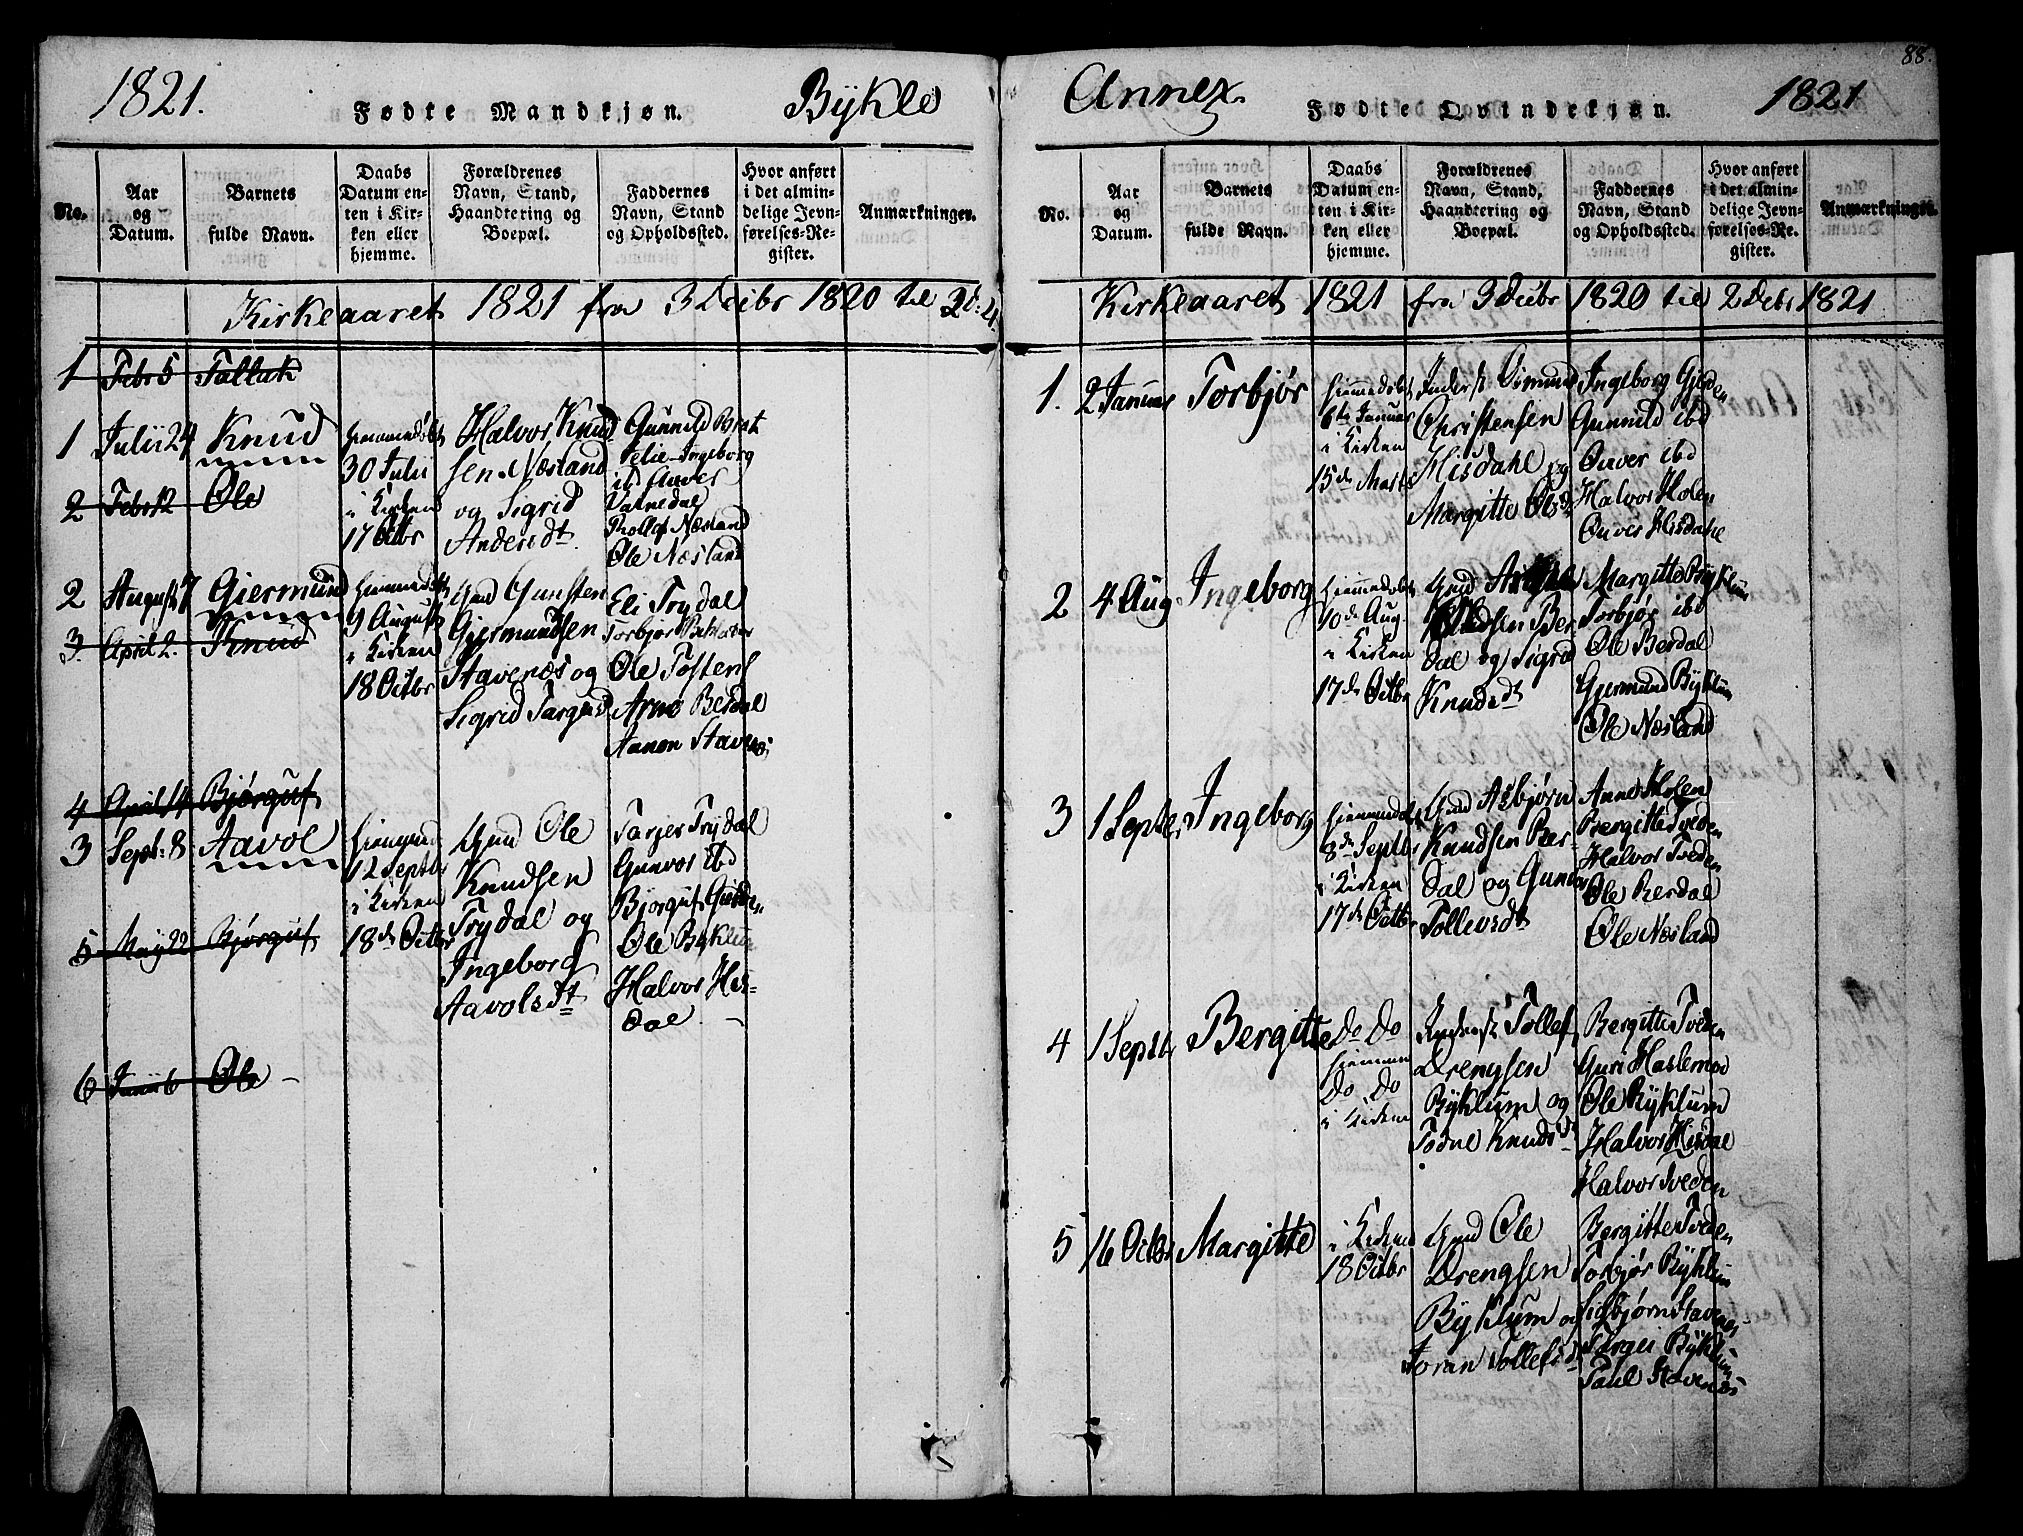 1821.
Fødte Mandkjøn.
Bykle
No.
Aar
og
Datum.
Barnets
fulde Navn.
Daabs
Datum en-
ten i Kir-
ken eller
hjemme.
Forældrenes
Navn, Stand,
Haandtering og
Boepæl.
Faddernes
Navn, Stand
og Opholdssted.
Hvor anført
i det almin-
delige Jevn-
førelses-Re-
gister.
Anmærkninger.
Kirkeaaret 1821 fra 3 Decbr 1820 til
1 Febr 5 Tallak
1 Julii 24 Knud
30 Julii
i Kirken
17 Octbr
Halvor Knud
sen Næsland
og Sigrid
Andersdt.
Gunnild
Ingeborg
Ole Næsland
2 Febr 12 Ole
2 August 7 Gjermund
9 August
i Kirken
18 Octbr
Gmd Gunsten
Gjermundsen
Stavenæs og
Sigrid
Eli Trydal
Torbjør
Ole Tostens
Arne Berdal
Aanon
3. April 2. Knud
4 April 14 Bjørguf
3 Sept: 8 Aavol
12 Septbr
i Kirken
18de Octbr
Gmd Ole
Knudsen
Trydal og
Ingeborg
Aavolsdt
Tarjer Trydal
Gunvor ibd
Bjorguf
Ole Byklum
Halvor His-
dal
5 May 22 Bjørguf
6 Junii 6 Ole
88.
Annex.
Fødte Qvindekjøn.
1821
No.
Aar
og
Datum.
Barnets
fulde Navn.
Daabs
Datum en-
ten i Kir-
ken eller
hjemme.
Forældrenes
Navn, Stand,
Haandtering og
Boepæl.
Faddernes
Navn, Stand
og Opholdssted.
Hvor anført
i det almin-
delige Jevn-
førelses-Re-
gister.
Anmærkninger.
Kirkeaaret 1821 fra 3 Decbr 1820 til 2 Decbr 1821
1. 2 Januar Torbjør
6te Januar
i Kirken
15de Marts
Osmund
Christensen
Hisdahl og
Margitte Olsdt
Ingeborg Gjelden
Gunnild ibd
Onver ibd
Halvor Holen
Onver Hisdahl
2 4 Aug Ingeborg
10de Aug.
i Kirken
17de Octbr
Gmd
Knudsen Ber
dal og Sigrid
Knudsdt
Margitte Byklum
Torbjør ibd
Ole Berdal
Gjermund Byklum
Ole Næsland
3 1 Septbr Ingeborg
8de Septbr
i Kirken
17de Octbr
Gmd Asbjørn
Knudsen Ber-
dal og Gunvor
Tollevsdt
Anne Holen
Bergitte Tveden
Halvor Tveden
Ole Berdal
Ole Næsland
4 1 Septbr Bergitte
Do Do
hjemme
Do Do
i Kirken
Tollef
Drengsen
Byklum og
Knudsdt
Bergitte Tveden
Guri Haslemo
Ole Byklum
Halvor Hisdal
Halvor Tveden
5 16 Octbr Margitte
i Kirken
18 Octbr
Gmd Ole
Drengsen
Byklum og
Joran Tollefsdt
Bergitte Tveden
Torbjør Byklum
Sigbjørn Stavenæs
Targei Byklum
Paul Stavenæs